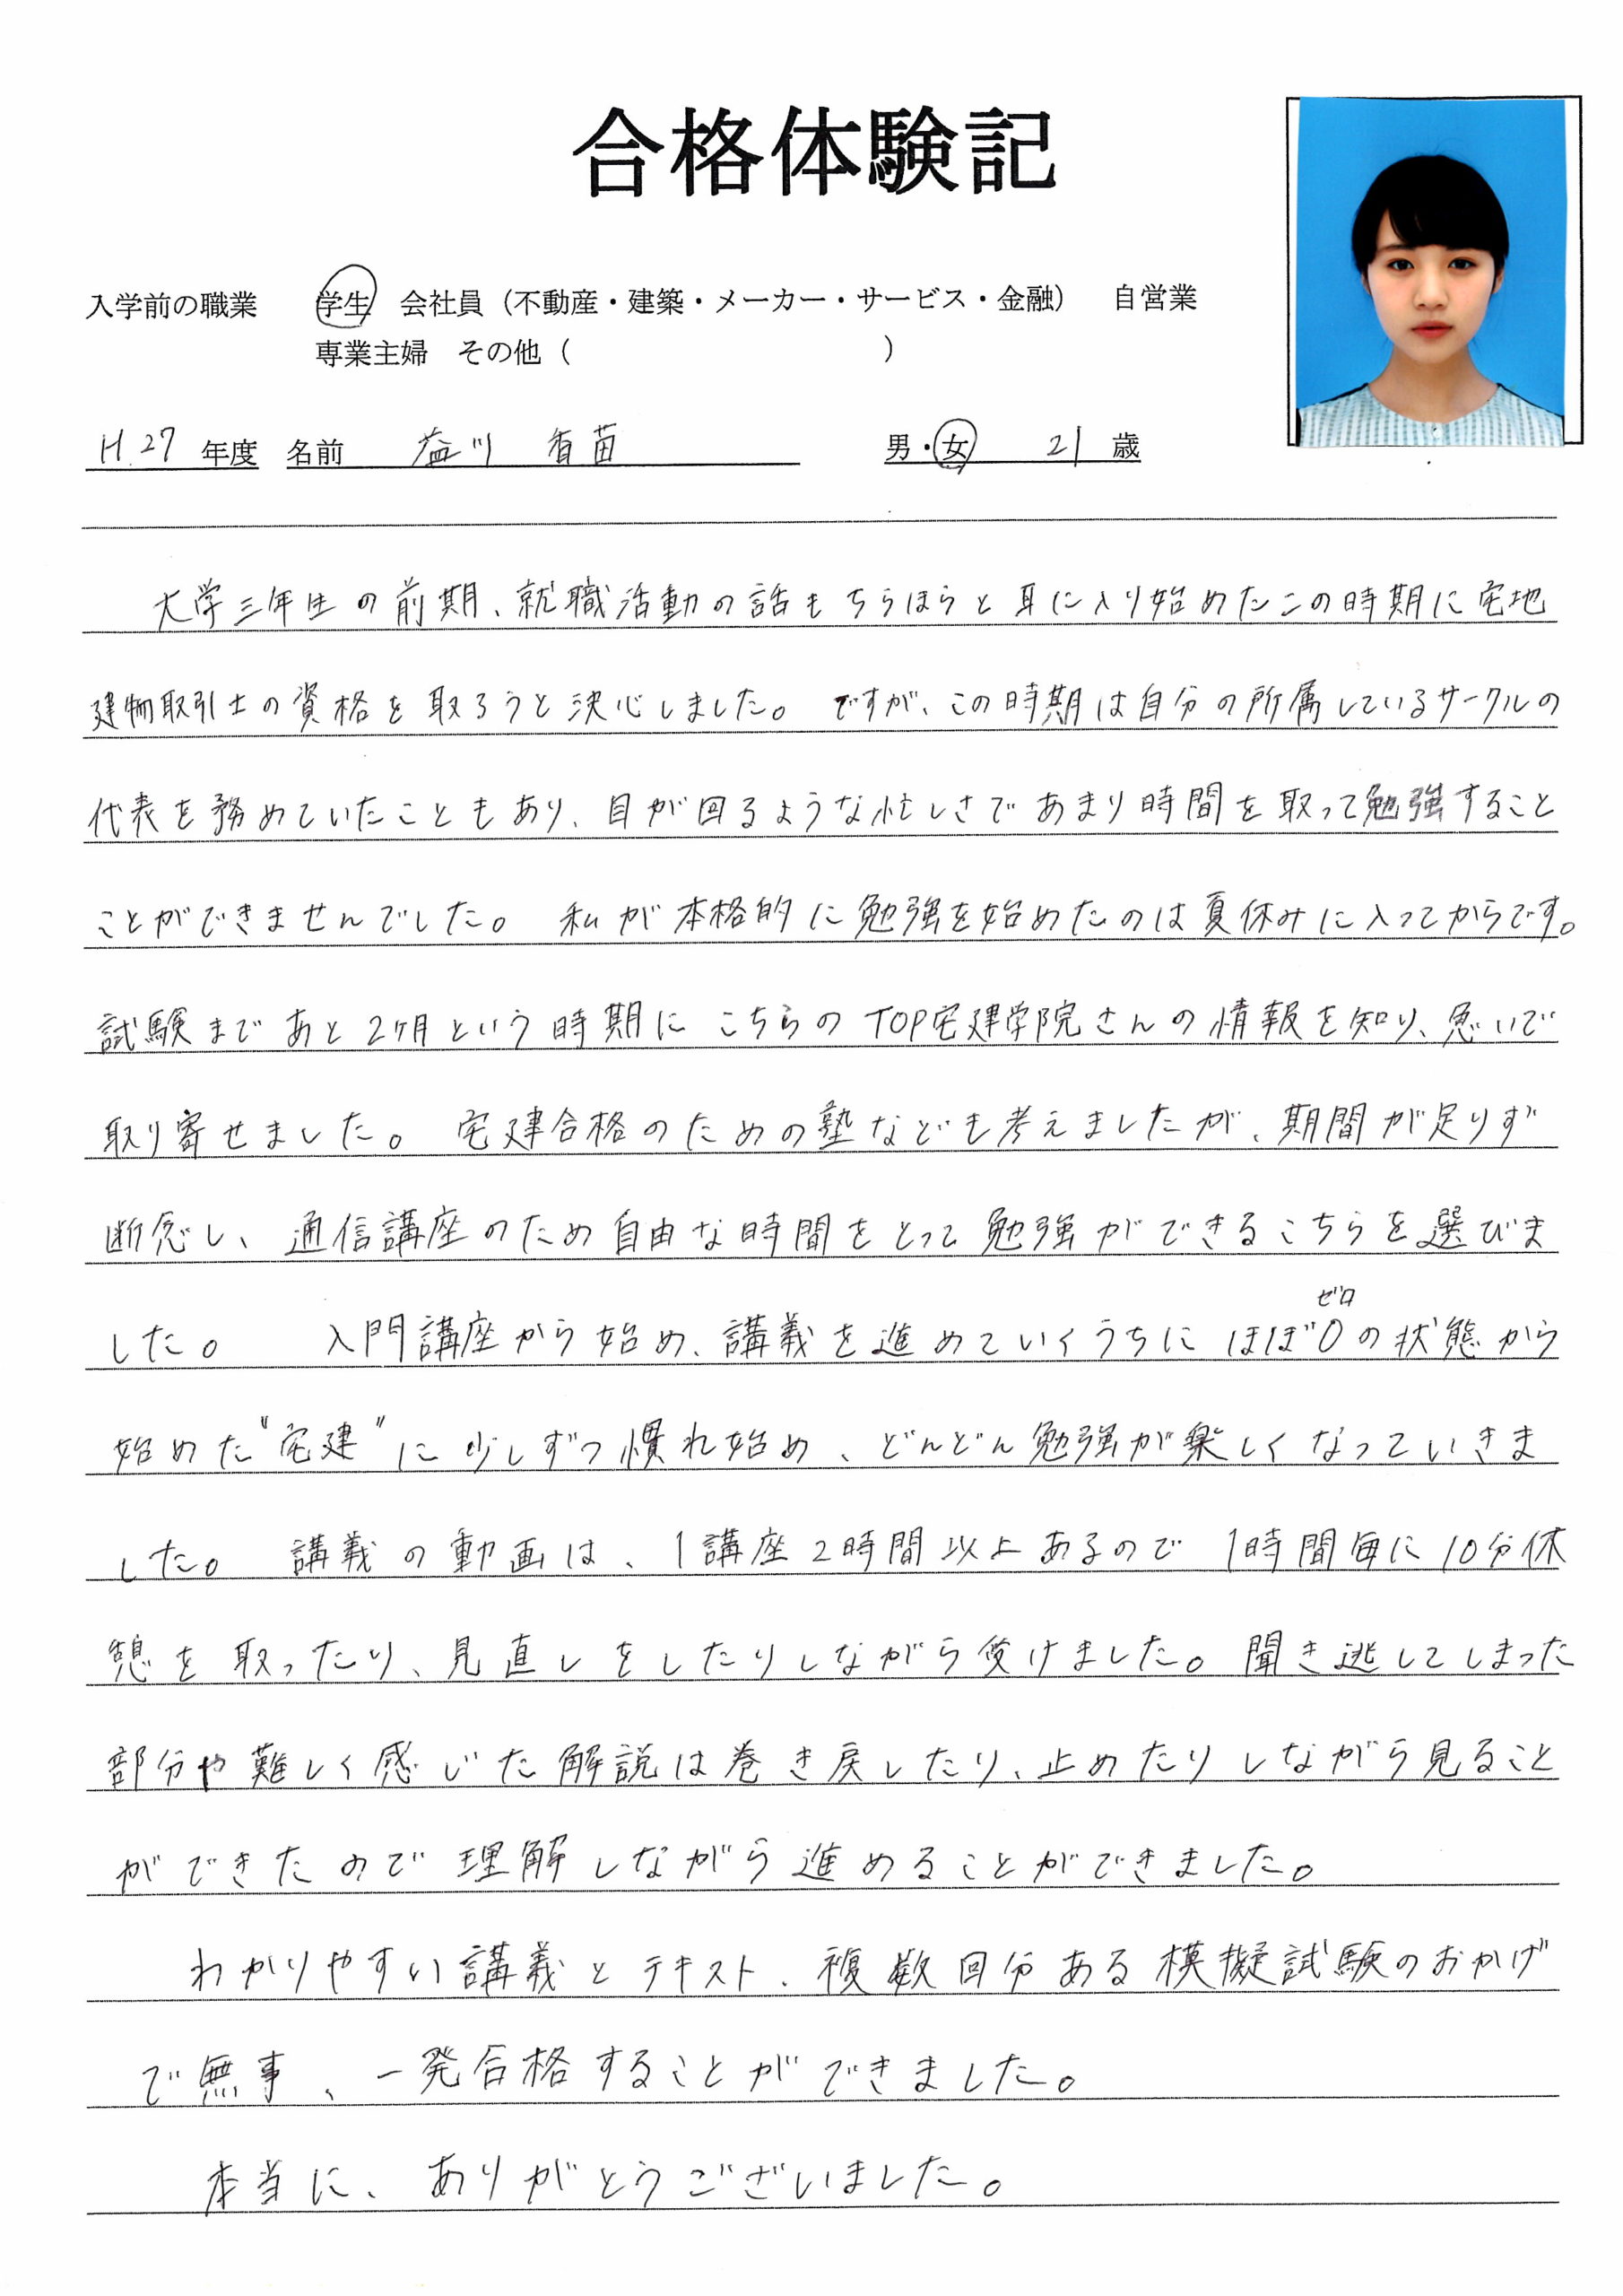 合格体験記
入学前の職業 学生 会社員（不動産・建築・メーカー・サービス・金融） 自営業
専業主婦 その他（ ）
H.27 年度 名前 益川 香苗 男・女 21 歳
大学三年生の前期、就職活動の話もちらほらと耳に入り始めたこの時期に宅地
建物取引士の資格を取ろうと決心しました。ですが、この時期は自分の所属しているサークルの
代表を務めていたこともあり、目が回るような忙しさであまり時間を取って勉強すること
ことができませんでした。私が本格的に勉強を始めたのは夏休みに入ってからです。
試験まであと2ヶ月という時期にこちらのTOP宅建学院さんの情報を知り、急いで
取り寄せました。宅建合格のための塾なども考えましたが、期間が足りず
断念し、通信講座のため自由な時間をとって勉強ができるこちらを選びま
ゼロ
した。 入門講座から始め、講義を進めていくうちにほぼ0の状態から
始めた"宅建"に少しずつ慣れ始め、どんどん勉強が楽しくなっていきま
した。講義の動画は、1講座2時間以上あるので1時間毎に10分休
憩を取ったり、見直しをしたりしながら受けました。聞き逃してしまった
部分や難しく感じた解説は巻き戻したり、止めたりしながら見ること
ができたので理解しながら進めることができました。
わかりやすい講義とテキスト、複数回分ある模擬試験のおかげ
で無事、一発合格することができました。
本当に、ありがとうございました。